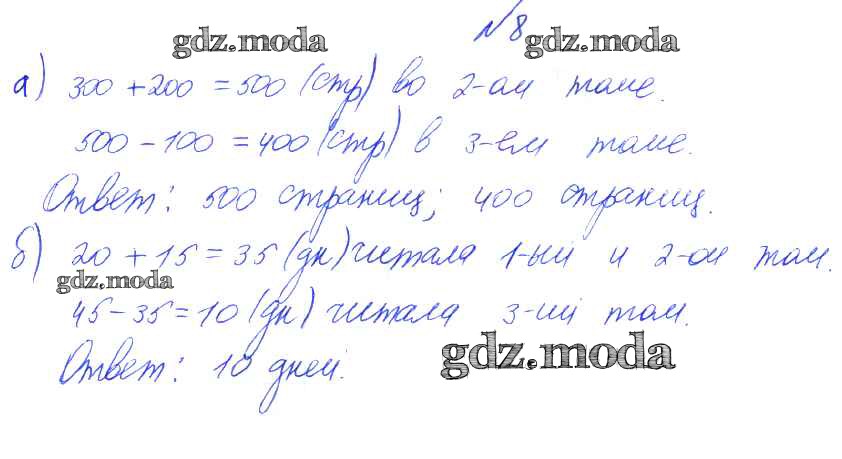 №8
gdz.moda gdz.moda
а) 300 + 200 = 500 (стр) во 2-ом томе.
500 - 100 = 400 (стр) в 3-ем томе.
Ответ: 500 страниц; 400 страниц.
б) 20 + 15 = 35 (дн) читала 1-ый и 2-ой том.
gdz.moda
45 - 35 = 10 (дн) читала 3-ий том.
gdz.moda
Ответ: 10 дней.